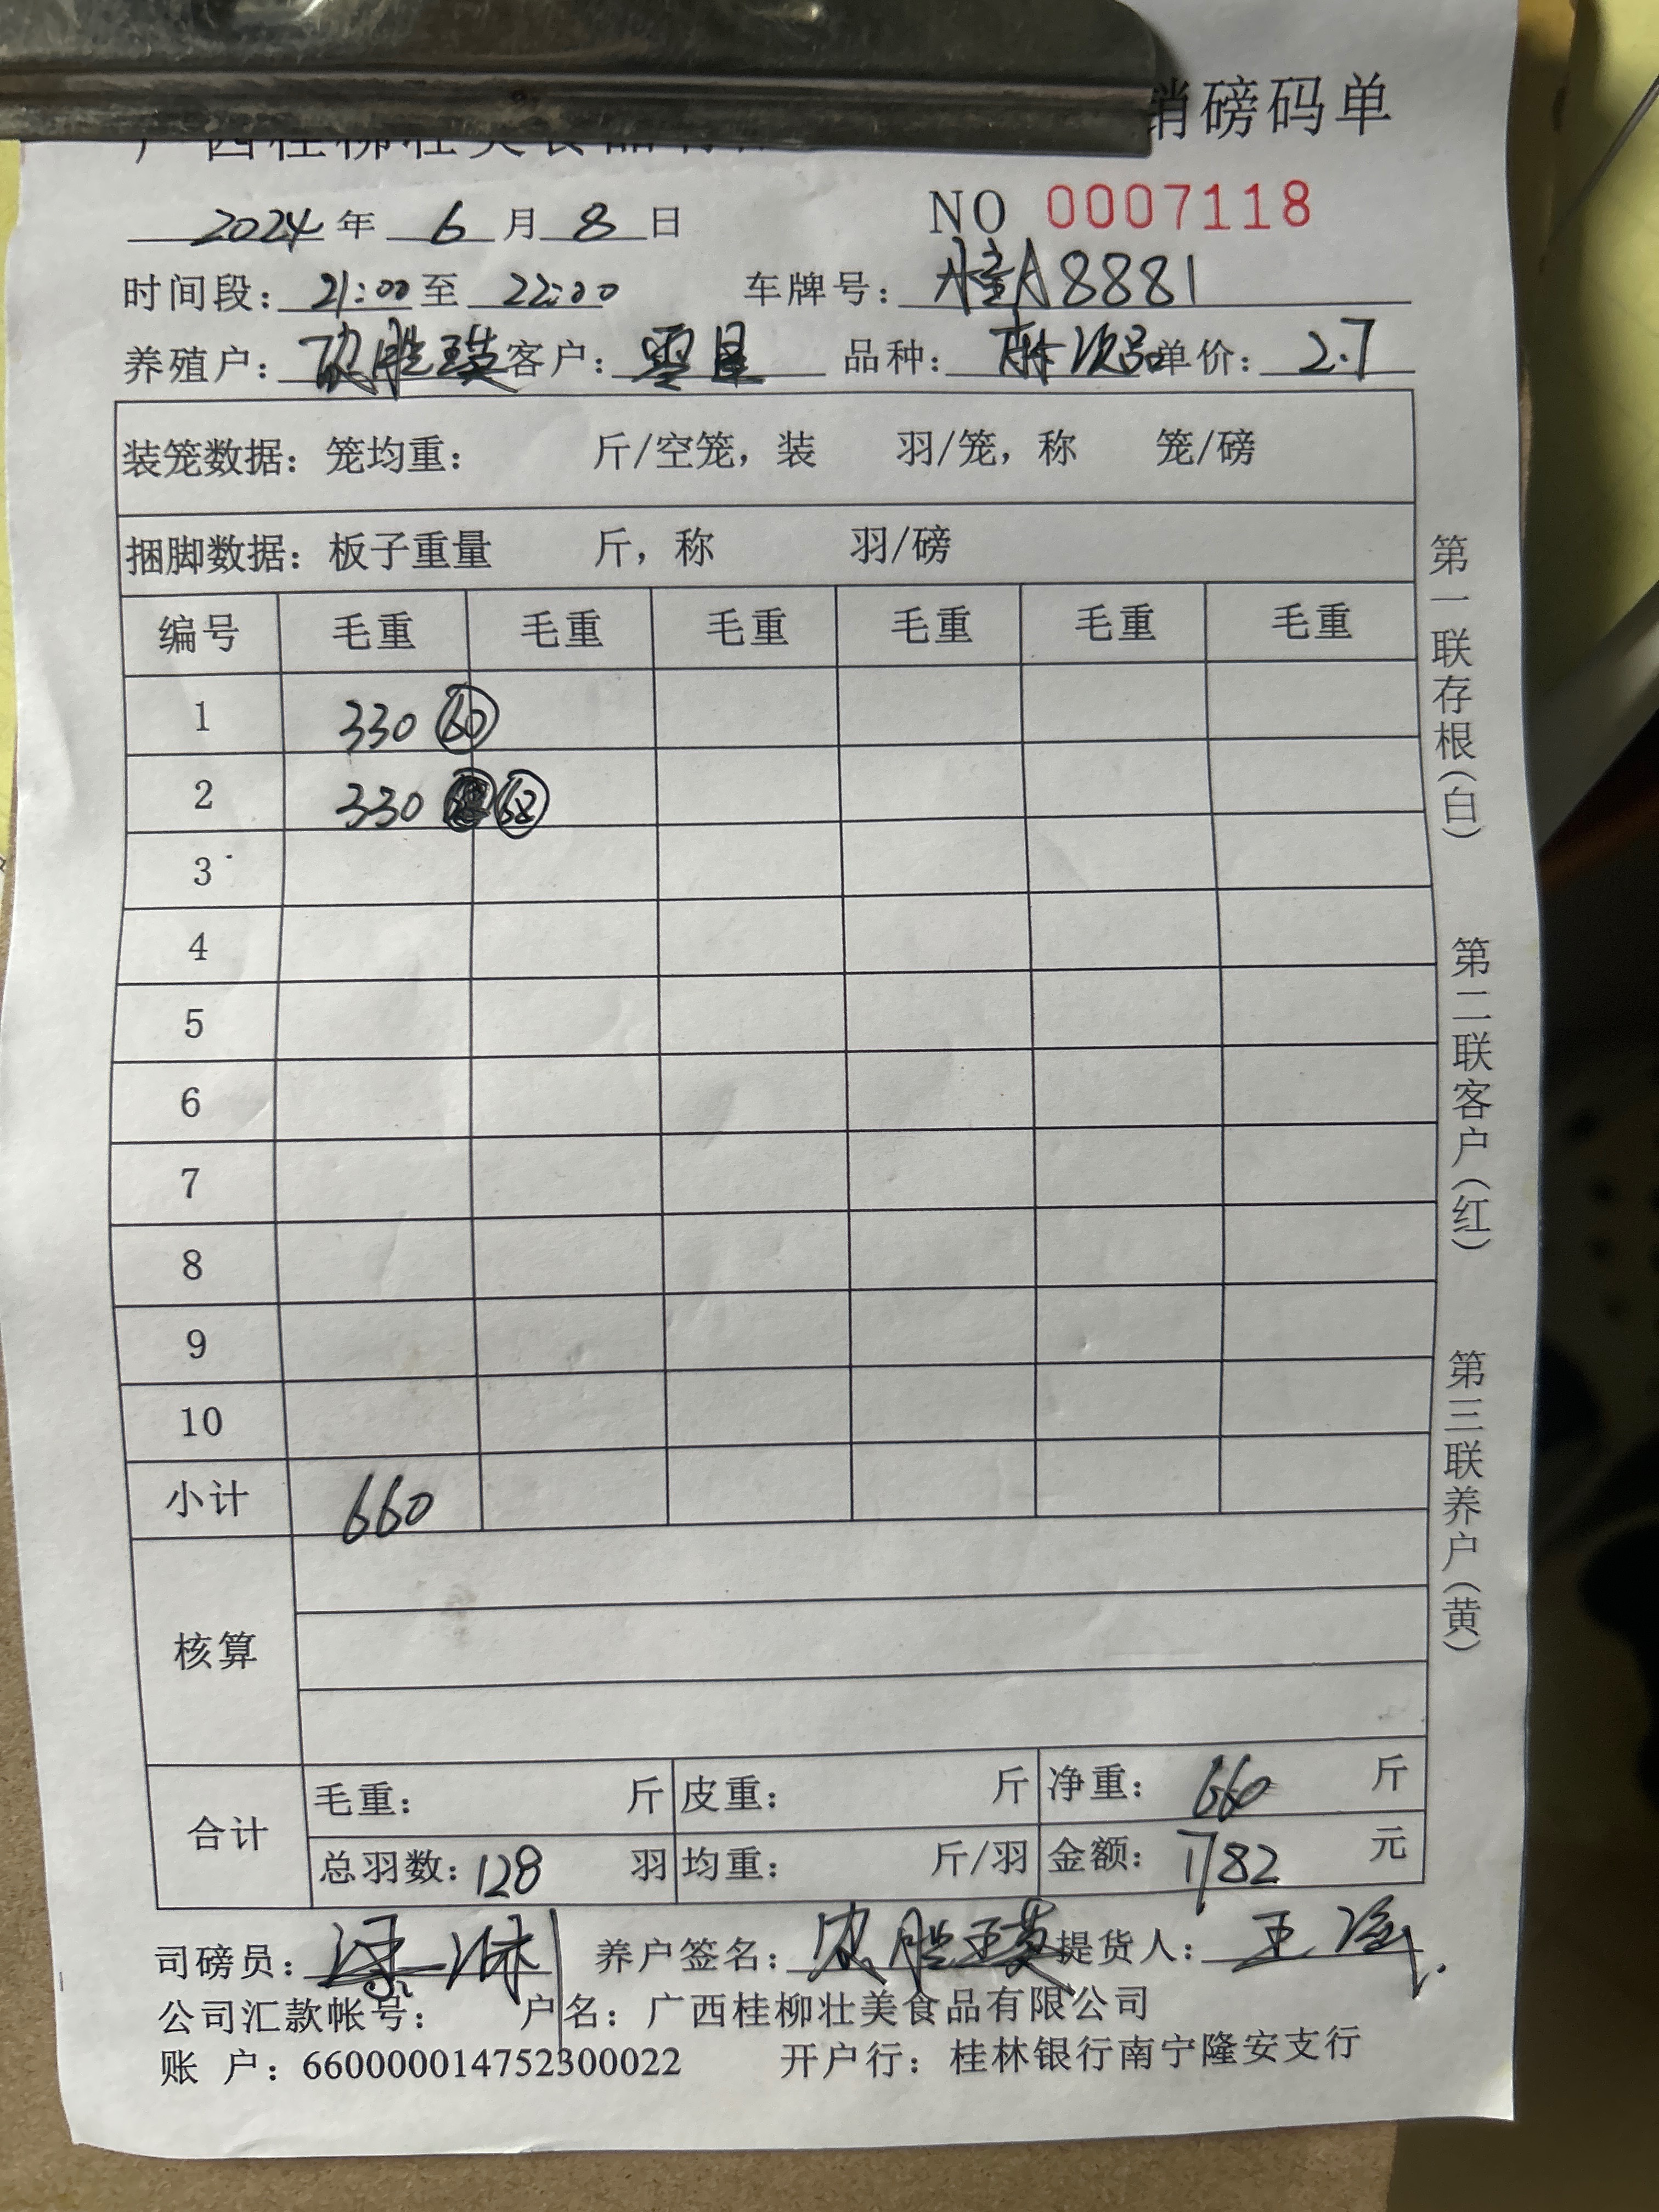 销磅码单
2024年 6月 8日 NO 0007118
时间段: 21:00至 22:00 车牌号: 桂A8881
养殖户: 胜瑛 客户: 零星 品种: 次品 单价: 2.7
装笼数据: 笼均重: 斤/空笼, 装 羽/笼, 称 笼/磅
捆脚数据: 板子重量 斤, 称 羽/磅
编号 毛重 毛重 毛重 毛重 毛重 毛重
1 330 60
2 330 68
3
4
5
6
7
8
9
10
小计 660
核算
合计 毛重: 斤 皮重: 斤 净重: 660 斤
总羽数: 128 羽 均重: 斤/羽 金额: 1782 元
司磅员: 养户签名: 胜瑛 提货人: 王
公司汇款帐号: 户名: 广西桂柳壮美食品有限公司
账 户: 660000014752300022 开户行: 桂林银行南宁隆安支行
第一联存根(白)
第二联客户(红)
第三联养户(黄)